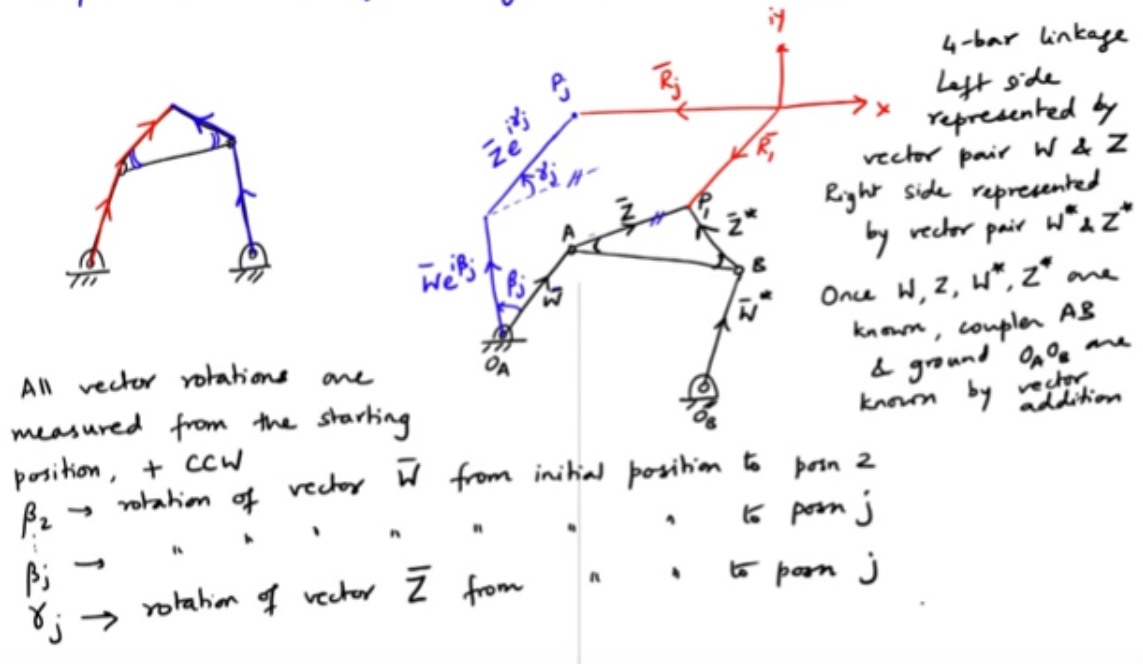 iy
x
R̄j
R̄1
Pj
Z̄e^iγj
γj
//
W̄e^iβj
βj
W̄
OA
A
Z̄
//
P1
Z̄*
B
W̄*
OB
4-bar linkage
Left side
represented by
vector pair W & Z
Right side represented
by vector pair W* & Z*
Once W, Z, W*, Z* are
known, coupler AB
& ground OAOB are
known by vector
addition
All vector rotations are
measured from the starting
position, + CCW
β2 → rotation of vector W̄ from initial position to posn 2
⋮
βj → " " " " " " to posn j
γj → rotation of vector Z̄ from " " to posn j